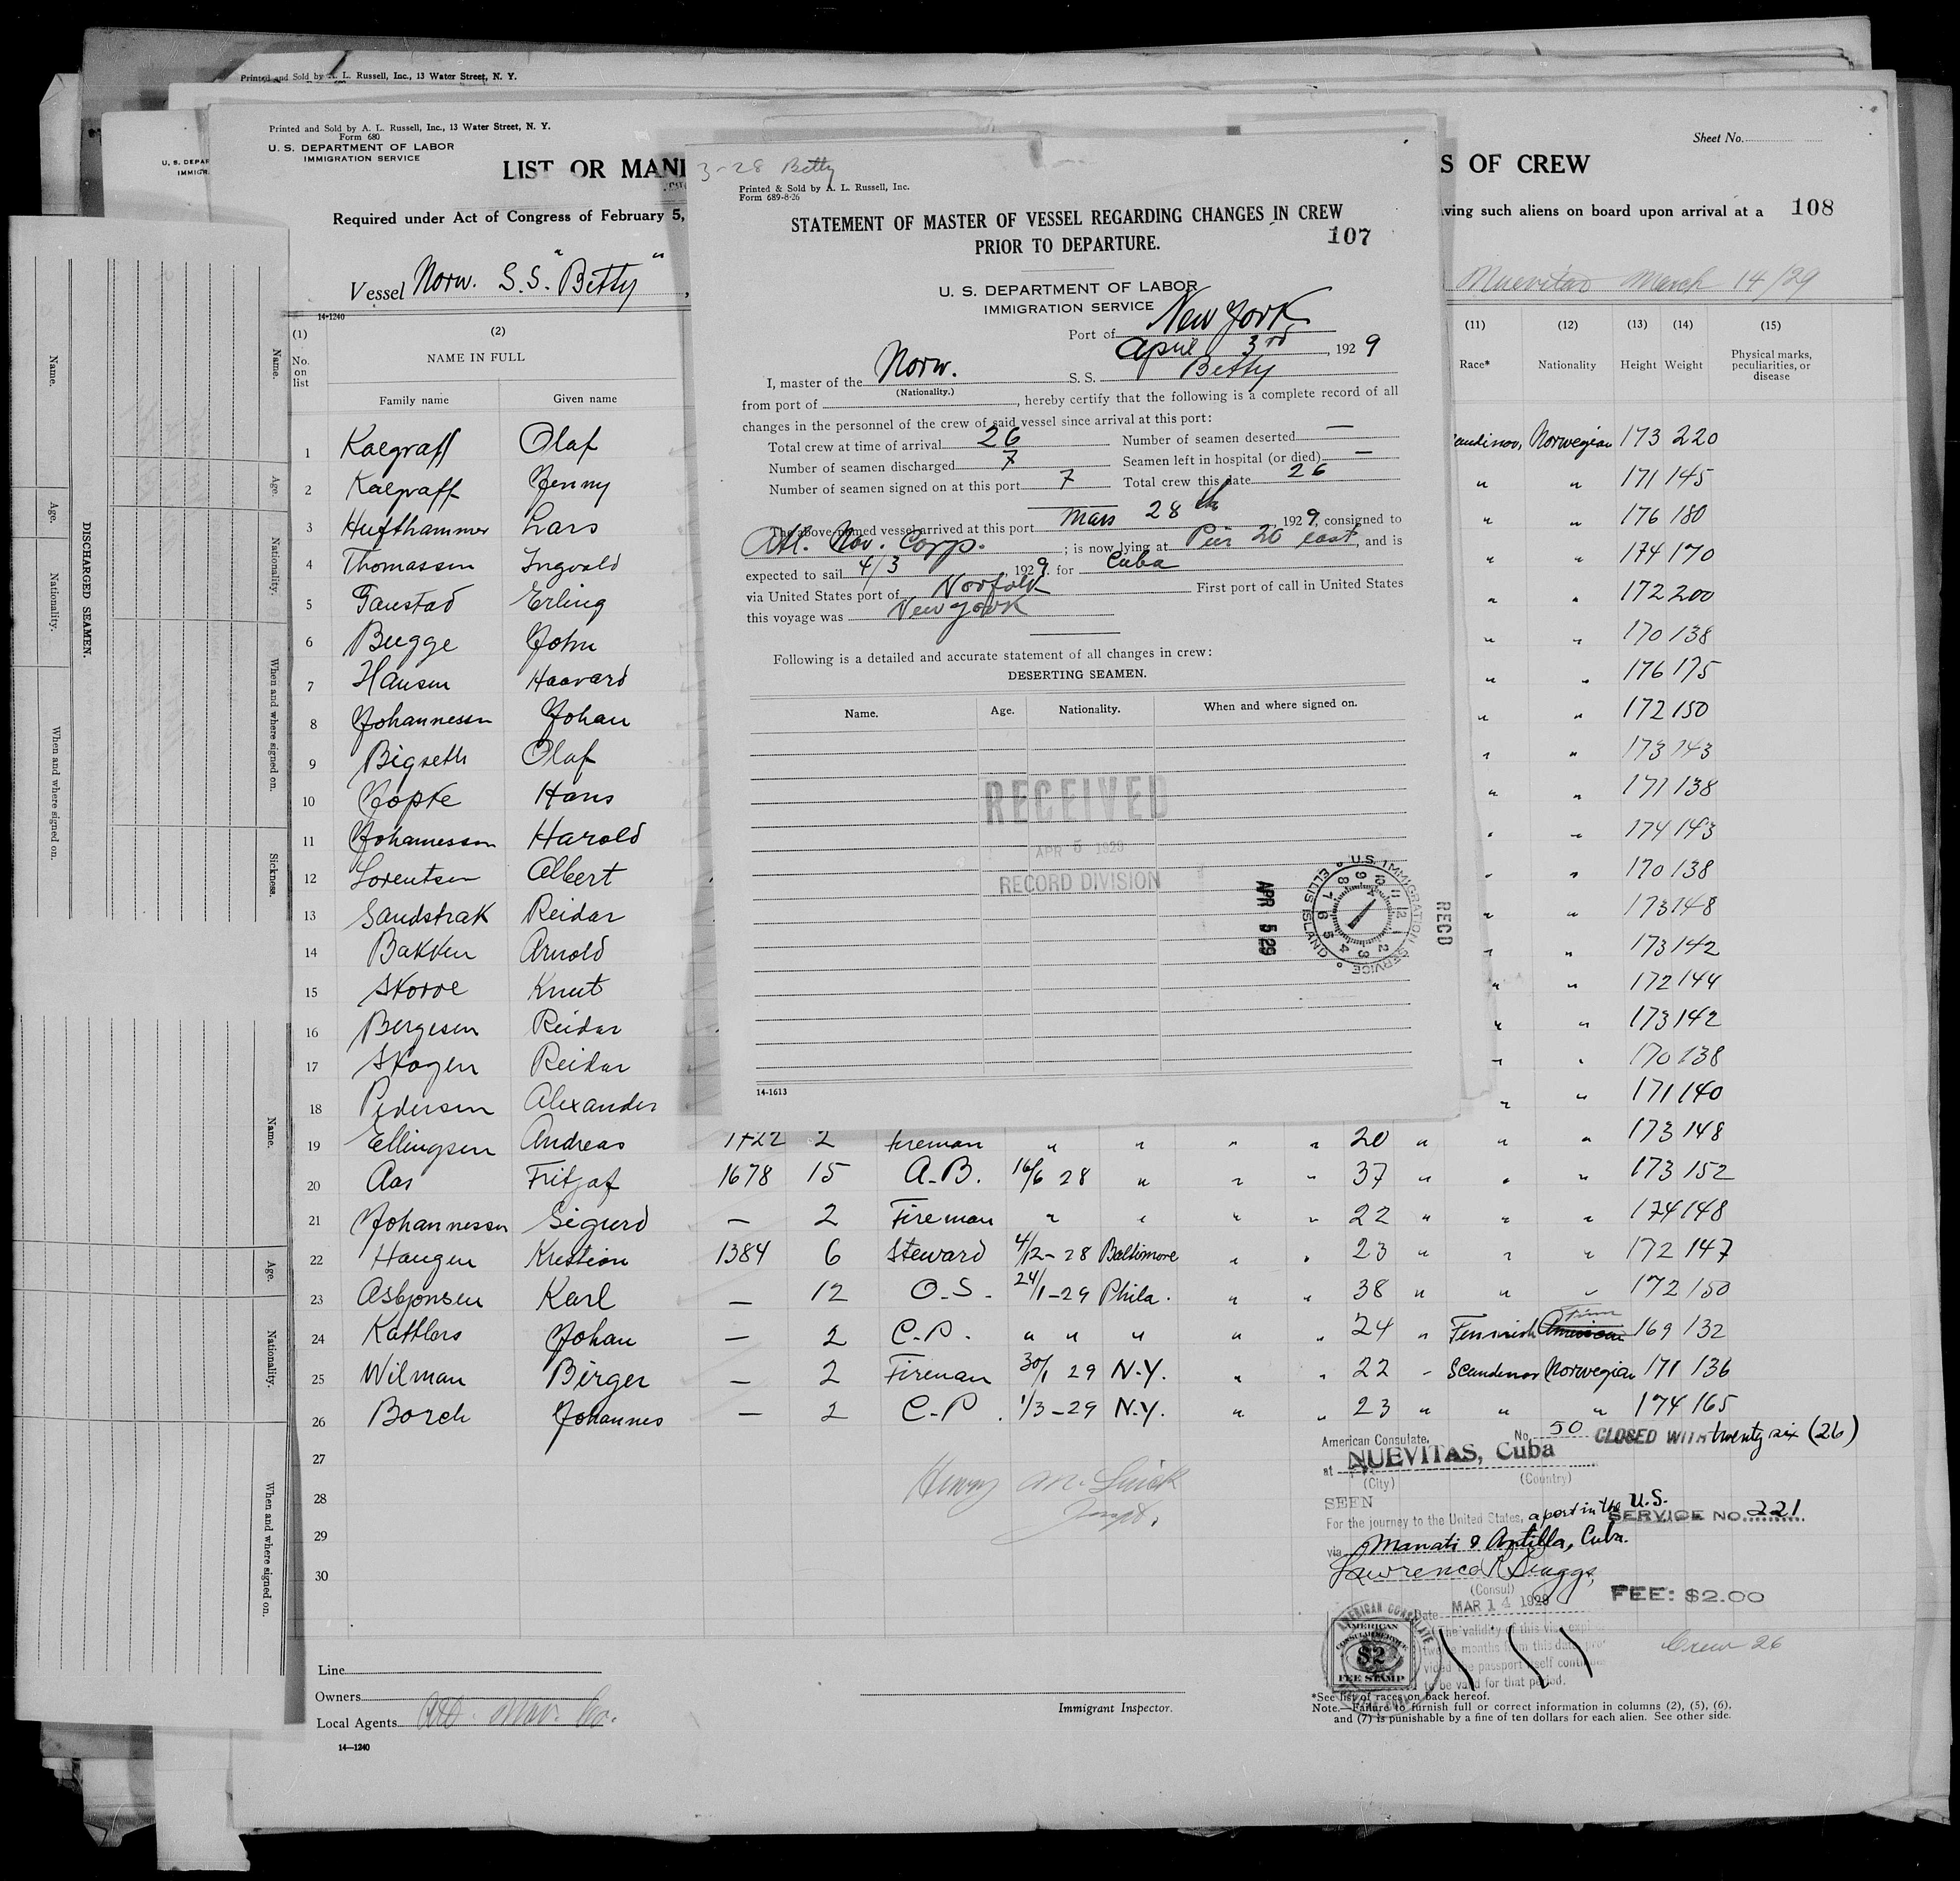 Printed and Sold by A. L. Russell, Inc., 13 Water Street, N. Y.
Printed and Sold by A. L. Russell, Inc., 13 Water Street, N. Y.
Form 680
U. S. DEPARTMENT OF LABOR
IMMIGRATION SERVICE
U. S. DEPAR
IMMIGR
LIST OR MANI
S OF CREW
Sheet No.
Required under Act of Congress of February 5,
ving such aliens on board upon arrival at a
108
Vessel Norw. S.S. "Betty",
Nuevitas March 14/29
14-1240
(1) (2) (11) (12) (13) (14) (15)
No. on list NAME IN FULL Race* Nationality Height Weight Physical marks, peculiarities, or disease
Family name Given name
1 Kalgraff Olaf Norwegian 173 220
2 Kalgraff Jenny " " 171 145
3 Hufthammer Lars " " 176 180
4 Thomassen Ingvald " " 174 170
5 Erling " " 172 200
6 Bugge John " " 170 138
7 Hansen Haavard " " 176 175
8 Johannessen Johan " " 172 150
9 Bigseth Olaf " " 173 143
10 Hans " " 171 138
11 Johannessen Harold " " 174 143
12 Lorentsen Albert " " 170 138
13 Sandstrak Reidar " " 173 148
14 Bakken Arnold " " 173 142
15 Knut " " 172 144
16 Bergesen Reidar " " 173 142
17 Skogen Reidar " " 170 138
18 Pedersen Alexander " " 171 140
19 Ellingsen Andreas 1722 2 Fireman " " " " 20 " " " 173 148
20 Aas Fritjof 1678 15 A.B. 16/6 28 " " " 37 " " " 173 152
21 Johannessen Sigurd — 2 Fireman " " " " 22 " " " 174 148
22 Haugen Kristian 1384 6 Steward 4/12-28 Baltimore " " 23 " " " 172 147
23 Asbjonsen Karl — 12 O.S. 24/1-29 Phila. " " 38 " " " 172 150
24 Kattlars Johan — 2 C.P. " " " " " 24 " Finnish Finn 169 132
25 Wilman Birger — 2 Fireman 30/1 29 N.Y. " " 22 " Scandinav Norwegian 171 136
26 Borch Johannes — 2 C.P. 1/3-29 N.Y. " " 23 " " " 174 165
27
28
29
30
Line
Owners
Local Agents Atl. Nav. Co.
14—1240
Immigrant Inspector.
American Consulate, No. 50 CLOSED WITH twenty six (26)
at NUEVITAS, Cuba
(City) (Country)
SEEN
For the journey to the United States, a port in the U.S.
SERVICE NO. 221
via Manati & Antilla, Cuba.
Lawrence
(Consul)
FEE: $2.00
Date MAR 14 1929
AMERICAN CONSULATE
AMERICAN CONSULAR SERVICE $2 FEE STAMP
The validity of this visa expires
twelve months from this date, pro-
vided the passport itself continues
to be valid for that period.
Crew 26
*See list of races on back hereof.
Note.—Failure to furnish full or correct information in columns (2), (5), (6),
and (7) is punishable by a fine of ten dollars for each alien. See other side.
3-28 Betty
Printed & Sold by A. L. Russell, Inc.
Form 689-8-26
STATEMENT OF MASTER OF VESSEL REGARDING CHANGES IN CREW
PRIOR TO DEPARTURE.
107
U. S. DEPARTMENT OF LABOR
IMMIGRATION SERVICE
Port of New York
April 3rd, 1929
I, master of the Norw. S. S. Betty
(Nationality.)
from port of , hereby certify that the following is a complete record of all
changes in the personnel of the crew of said vessel since arrival at this port:
Total crew at time of arrival 26 Number of seamen deserted —
Number of seamen discharged 7 Seamen left in hospital (or died) —
Number of seamen signed on at this port 7 Total crew this date 26
The above-named vessel arrived at this port Mars 28th, 1929, consigned to
Atl. Nav. Corp.; is now lying at Pier 26 east, and is
expected to sail 4/3, 1929. for Cuba
via United States port of Norfolk First port of call in United States
this voyage was New York
Following is a detailed and accurate statement of all changes in crew:
DESERTING SEAMEN.
Name. Age. Nationality. When and where signed on.
RECEIVED
APR 5 1929
RECORD DIVISION
APR 5 29
U.S. IMMIGRATION SERVICE ELLIS ISLAND
RECD
14-1613
DISCHARGED SEAMEN.
Name. Age. Nationality. When and where signed on.
Name. Age. Nationality. When and where signed on. Sickness.
Name. Age. Nationality. When and where signed on.